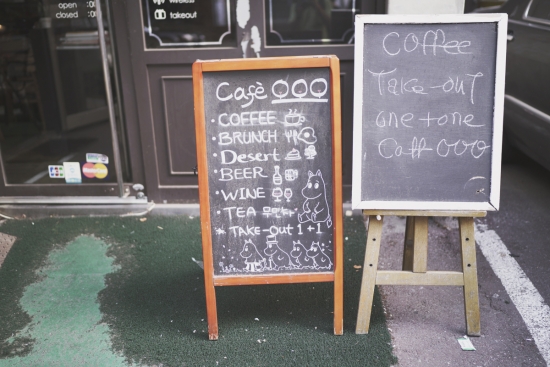 open
closed
wireless
takeout
Cafè OOO
• COFFEE
• BRUNCH
• Desert
• BEER
• WINE
• TEA
* TAKE-OUT 1+1
Coffee
Take-out
one+one
Caff OOO